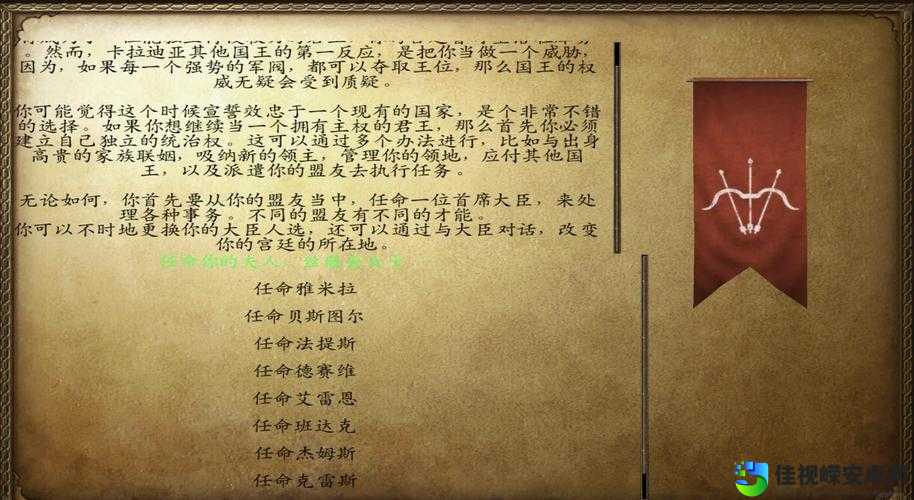 。然而，卡拉迪亚其他国王的第一反应，是把你当做一个威胁，
因为，如果每一个强势的军阀，都可以夺取王位，那么国王的权
威无疑会受到质疑。
你可能觉得这个时候宣誓效忠于一个现有的国家，是个非常不错
的选择。如果你想继续当一个拥有主权的君王，那么首先你必须
建立自己独立的统治权。这可以通过多个办法进行，比如与出身
高贵的家族联姻，吸纳新的领主，管理你的领地，应付其他国
王，以及派遣你的盟友去执行任务。
无论如何，你首先要从你的盟友当中，任命一位首席大臣，来处
理各种事务。不同的盟友有不同的才能。
你可以不时地更换你的大臣人选，还可以通过与大臣对话，改变
你的宫廷的所在地。
任命你的夫人，
任命雅米拉
任命贝斯图尔
任命法提斯
任命德赛维
任命艾雷恩
任命班达克
任命杰姆斯
任命克雷斯
佳视嵘安卓